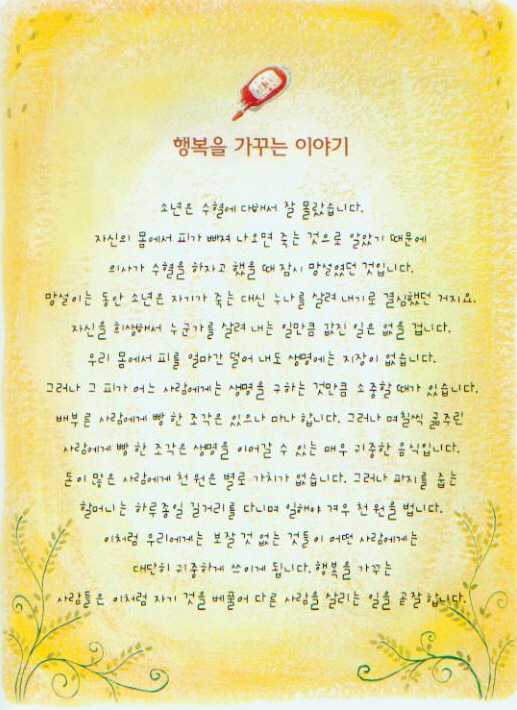 행복을 가꾸는 이야기
소년은 수혈에 대해서 잘 몰랐습니다.
자신의 몸에서 피가 빠져 나오면 죽는 것으로 알았기 때문에
의사가 수혈을 하자고 했을 때 잠시 망설였던 것입니다.
망설이는 동안 소년은 자기가 죽는 대신 누나를 살려 내기로 결심했던 거지요.
자신을 희생해서 누군가를 살려 내는 일만큼 값진 일은 없을 겁니다.
우리 몸에서 피를 얼마간 덜어 내도 생명에는 지장이 없습니다.
그러나 그 피가 어느 사람에게는 생명을 구하는 것만큼 소중할 때가 있습니다.
배부른 사람에게 빵 한 조각은 있으나 마나 합니다. 그러나 며칠씩 굶주린
사람에게 빵 한 조각은 생명을 이어갈 수 있는 매우 귀중한 음식입니다.
돈이 많은 사람에게 천 원은 별로 가치가 없습니다. 그러나 파지를 줍는
할머니는 하루종일 길거리를 다니며 일해야 겨우 천 원을 법니다.
이처럼 우리에게는 보잘 것 없는 것들이 어떤 사람에게는
대단히 귀중하게 쓰이게 됩니다. 행복을 가꾸는
사람들은 이처럼 자기 것을 베풀어 다른 사람을 살리는 일을 곧잘 합니다.